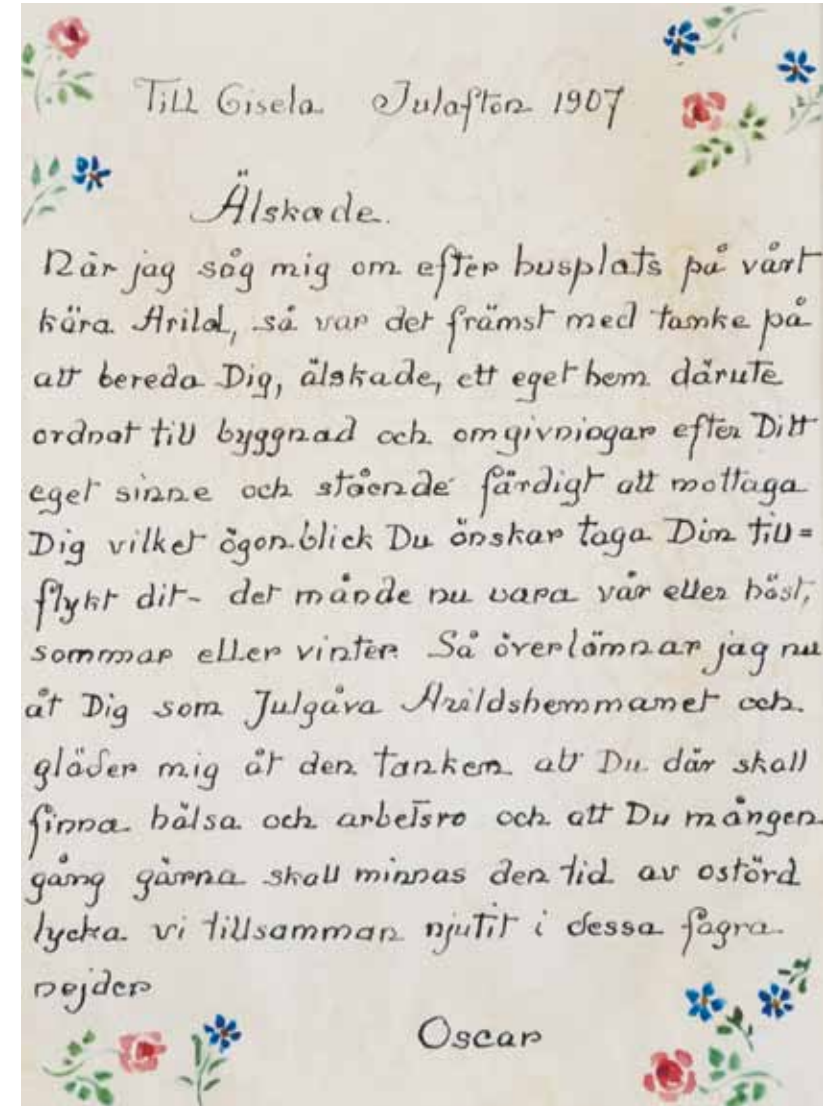 Till Gisela Julafton 1907
Älskade.
När jag såg mig om efter husplats på vårt
kära Arild, så var det främst med tanke på
att bereda Dig, älskade, ett eget hem därute
ordnat till byggnad och omgivningar efter Ditt
eget sinne och stående färdigt att mottaga
Dig vilket ögonblick Du önskar taga Din till=
flykt dit- det månde nu vara vår eller höst,
sommar eller vinter. Så överlämnar jag nu
åt Dig som Julgåva Arildshemmanet och
gläder mig åt den tanken att Du där skall
finna hälsa och arbetsro och att Du mången
gång gärna skall minnas den tid av ostörd
lycka vi tillsamman njutit i dessa fagra
nejder
Oscar